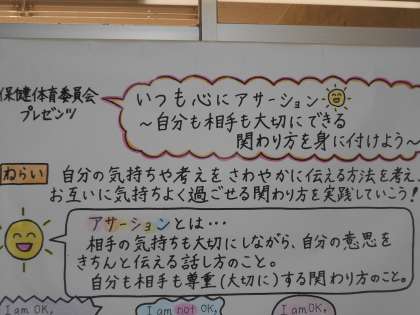 保健体育委員会
プレゼンツ
いつも心にアサーション
～自分も相手も大切にできる
関わり方を身に付けよう～
ねらい 自分の気持ちや考えをさわやかに伝える方法を考え、
お互いに気持ちよく過ごせる関わり方を実践していこう!
アサーションとは…
相手の気持ちも大切にしながら、自分の意思を
きちんと伝える話し方のこと。
自分も相手も尊重(大切に)する関わり方のこと。
I am OK, I am not OK, I am OK,